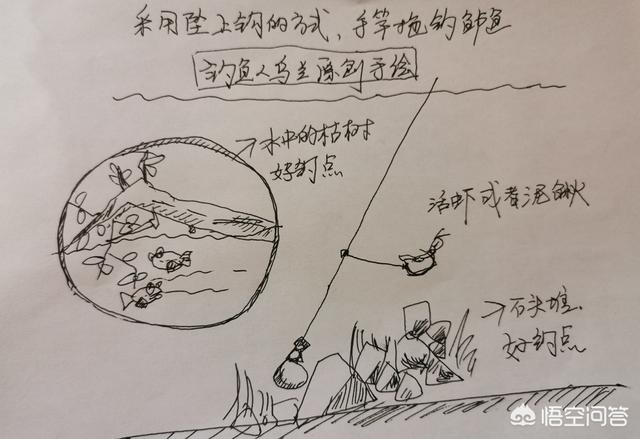 采用坠上钩的方式,手竿拖钓鲈鱼
钓鱼人乌兰原创手绘
水中的枯树
好钓点
活虾或者泥鳅
石头堆
好钓点
悟空问答